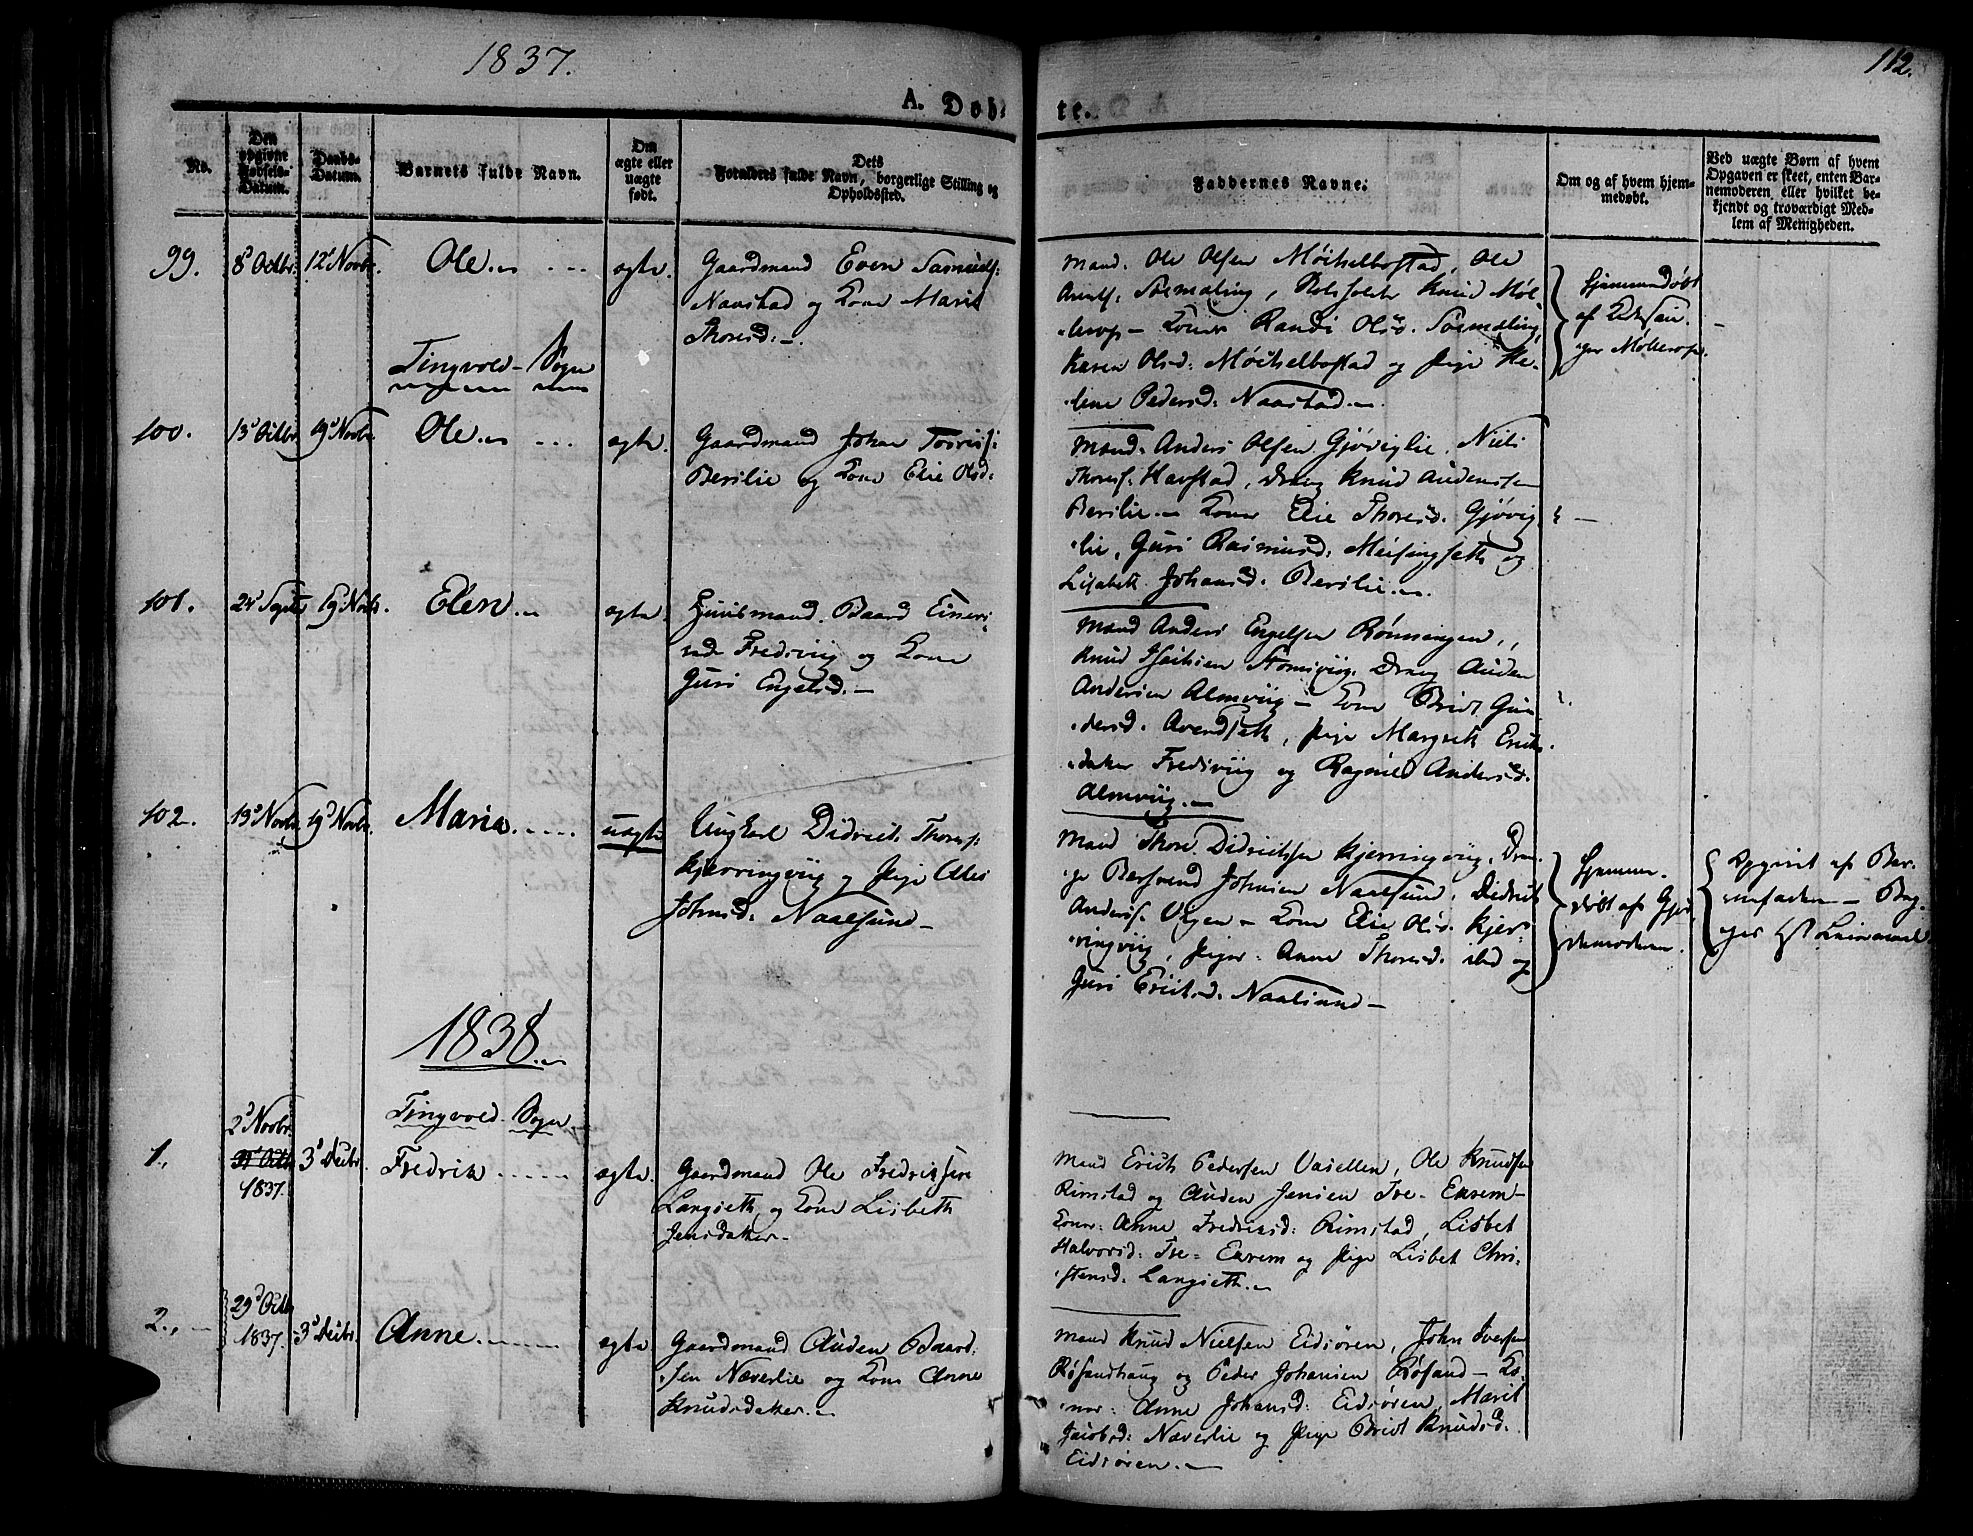 1837.
112.
A. Døbte.
No.
Den opgivne Fødsels-Datum.
Daabs-Datum.
Barnets fulde Navn.
Om ægte eller uægte født.
Dets Forældres fulde Navn, borgerlige Stilling og Opholdssted.
Faddernes Navne.
Om og af hvem hjem-
medøbt.
Ved uægte Børn af hvem
Opgaven er skeet, enten Bar-
nemoderen eller hvilket be-
kjendt og troværdigt Med-
lem af Menigheden.
99. 8d Octbr. 12d Novbr. Ole ægte.
Gaardmand Even
Naastad og Kone Marit
Thoresd:
Mand: Ole Olsen Ole
Knud Møl-
lerop - Koner Randi Olsd.
Karen Olsd: og Pige He-
lene Pedersd: Naastad.
Hjemmedøbt
af
Møllerop.
Tingvold Sogn
100. 13d Octbr. 19d Novbr. Ole ægte.
Gaardmand Johan
Berslie og Kone Elie Olsd:
Mand: Anders Olsen Gjøviglie, Niels
Thores: Havstad, Dreng Knud Audensen
Berslie. Kone Elie Thoresd. Gjøvig-
lie, Guri Rasmusd: Meisingseth og
Lisabeth Johansd. Berslie.
101. 24d Septbr 19d Novbr. Elen ægte.
Huusmand Baard
Fredsviig og Kone
Guri Engelsd.
Mand Anders Engelsen Rønningen,
Knud Dreng Auden
Andersen Almviig - Kone Brit Gun-
dersd. Arendseth, Pige Margreth Erichs-
datter Fredsviig og Ragnild Andersd.
Almviig.
102. 13d Novbr. 19d Novbr. Maria uægte
Ungkarl Didrich Thores:
Kjerringviig og Pige
Johnsd: Naalsund
Mand Thore Didrichsen Kjerringviig, Dren-
ge Bersvend Johnsen Naalsund, Didrich
Anders: Vaagen - Kone Elie Olsd. Kjer-
ringviig, Piger: Anne Thoresd. ibd og
Guri Erichsd. Naalsund
Hjemme-
døbt af Gjor-
demoderen.
Opgivet af Bar-
nefaderen
1838.
Tingvold Sogn
1. 2d Novbr. 1837. 3d Decbr. Fredrik ægte.
Gaardmand Ole Fredriksen
Langseth, og Kone Lisbeth
Jensdatter
Mand Erich Pedersen Vasellen, Ole Knudsen
Rimstad og Auden Jensen Tre- Eurem-
Koner: Anne Fredrichsd: Rimstad, Lisbet
Halvorsd: Tre- Eurem og Pige Lisbet Chri-
stensd: Langseth.
2. 29d Octbr 1837. 3d Decbr. Anne ægte
Gaardmand Auden Baard-
sen Næverlie og Kone Anne
Knudsdatter.
Mand Knud Nielsen Eidsøren, John Iversen
Røsandhaug og Peder Johansen Røsand - Ko-
ner: Anne Johansd: Eidsøren, Marit
Jacobsd: Næverlie og Pige Brit Knudsd:
Eidsøren.